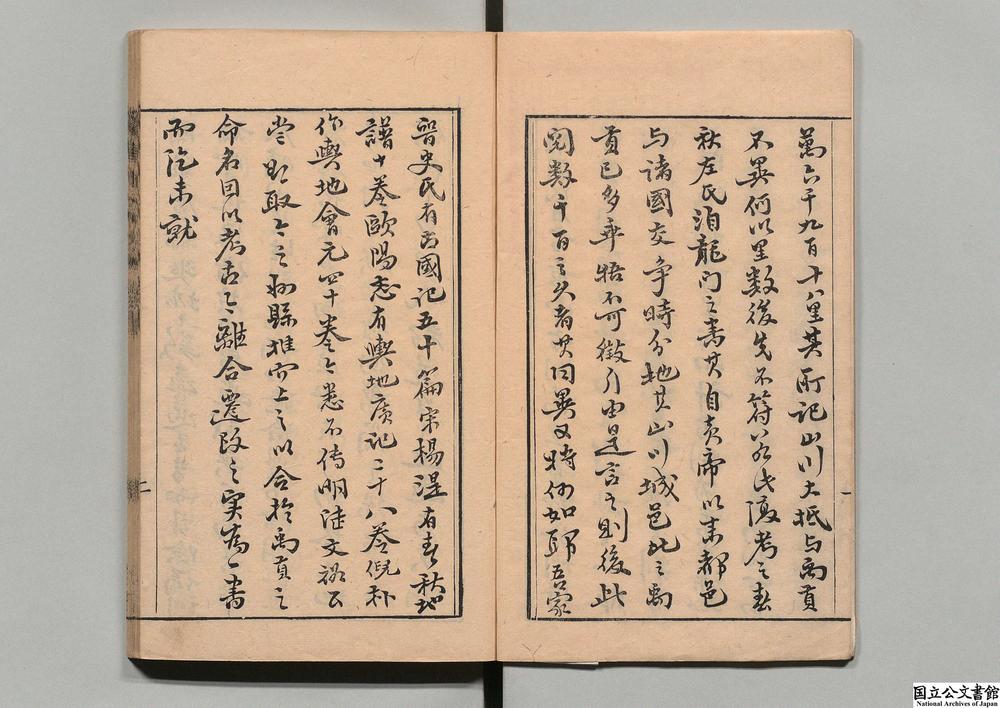 萬六千九百十八里其所記山川大抵与禹貢
不異何以里数後先不符若此復考之春
秋左氏洎龍门之書其自黄帝以来都邑
与諸國交争時分地其山川城邑比之禹
貢已多乖牾不可徵引由是言之則後此
閲数千百之久者其同異又特何如耶吾家
晋史氏有古國記五十篇宋楊湜有春秋地
譜十卷歐陽忞有輿地廣記三十八卷倪朴
作輿地會元四十卷今悉不傳明陸文裕公
嘗欲取今之州縣推而上之以合於禹貢之
命名因以考古今離合遷改之实為一書
而迄未就
一
二
国立公文書館
National Archives of Japan